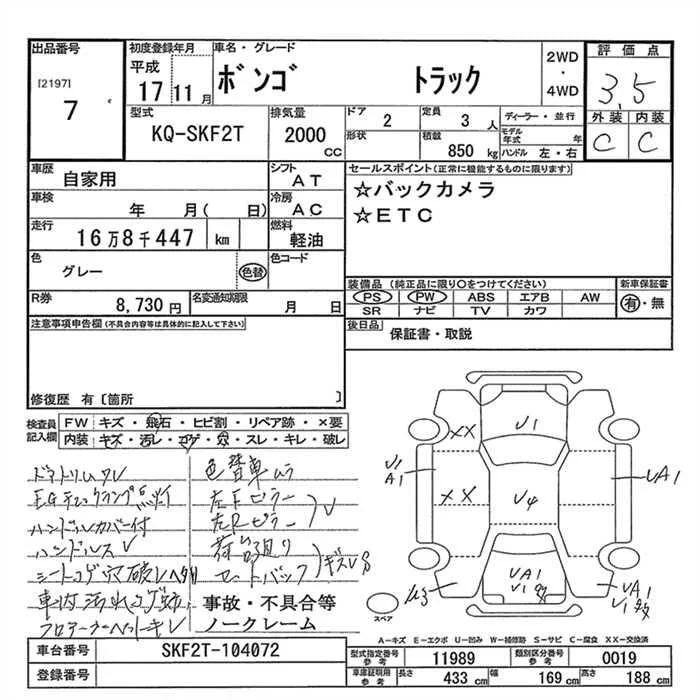 出品番号
[2197]
7
初度登録年月
平成
17 11 月
車名・グレード
ボンゴ トラック
2WD
・
4WD
評価点
3.5
外装 内装
C C
型式
KQ-SKF2T
排気量
2000
CC
ドア
2
定員
3 人
形状
積載
850 kg
ディーラー・並行
モデル年式 年
ハンドル 左・右
車歴
自家用
シフト
AT
車検
年 月( 日)
冷房
AC
走行
16万8千447 km
燃料
軽油
色
グレー
色替
色コード
R券
8,730 円
名変通知期限
月 日
セールスポイント(正常に機能するものに限ります)
☆バックカメラ
☆ETC
装備品(純正品に限り○をつけてください)
PS PW ABS エアB AW
SR ナビ TV カワ
新車保証書
有・無
後日品
保証書・取説
注意事項申告欄(不具合内容等は具体的に記入して下さい)
修復歴 有〔箇所 〕
検査員
記入欄
FW キズ・飛石・ヒビ割・リペア跡・×要
内装 キズ・汚レ・コゲ・穴・スレ・キレ・破レ
ドアトリムクレ
EGチェックランプ点灯
ハンドルカバー付
ハンドルスレ
車内汚れコゲ
色替車ムラ
左Fピラー
左Rピラー
荷台廻り
セットバック
事故・不具合等
ノークレーム
U1
XX
XX
U4
U1
A1
UA1
UA1
UA1
スペア
A-キズ E-エクボ U-凹み W-補修跡 S-サビ C-腐食 XX-交換済
車台番号
SKF2T-104072
登録番号
型式指定番号
参考
11989
類別区分番号
参考
0019
車庫証明用
参考
長さ
433 cm
幅
169 cm
高さ
188 cm